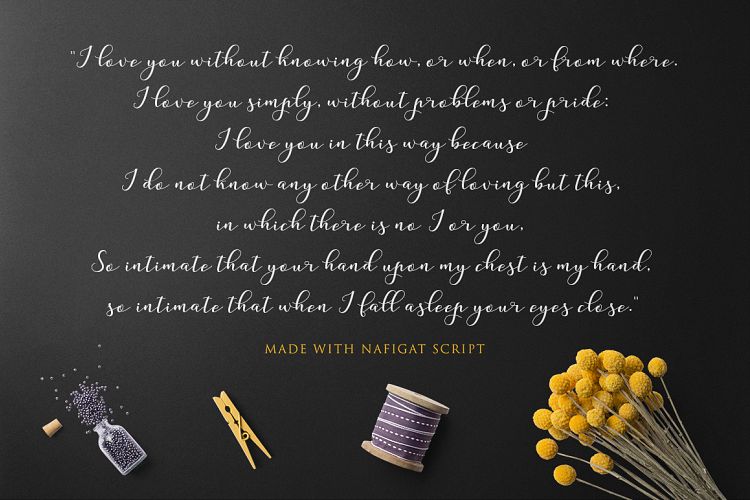 "I love you without knowing how, or when, or from where.
I love you simply, without problems or pride:
I love you in this way because
I do not know any other way of loving but this,
in which there is no I or you,
So intimate that your hand upon my chest is my hand,
so intimate that when I fall asleep your eyes close."
MADE WITH NAFIGAT SCRIPT